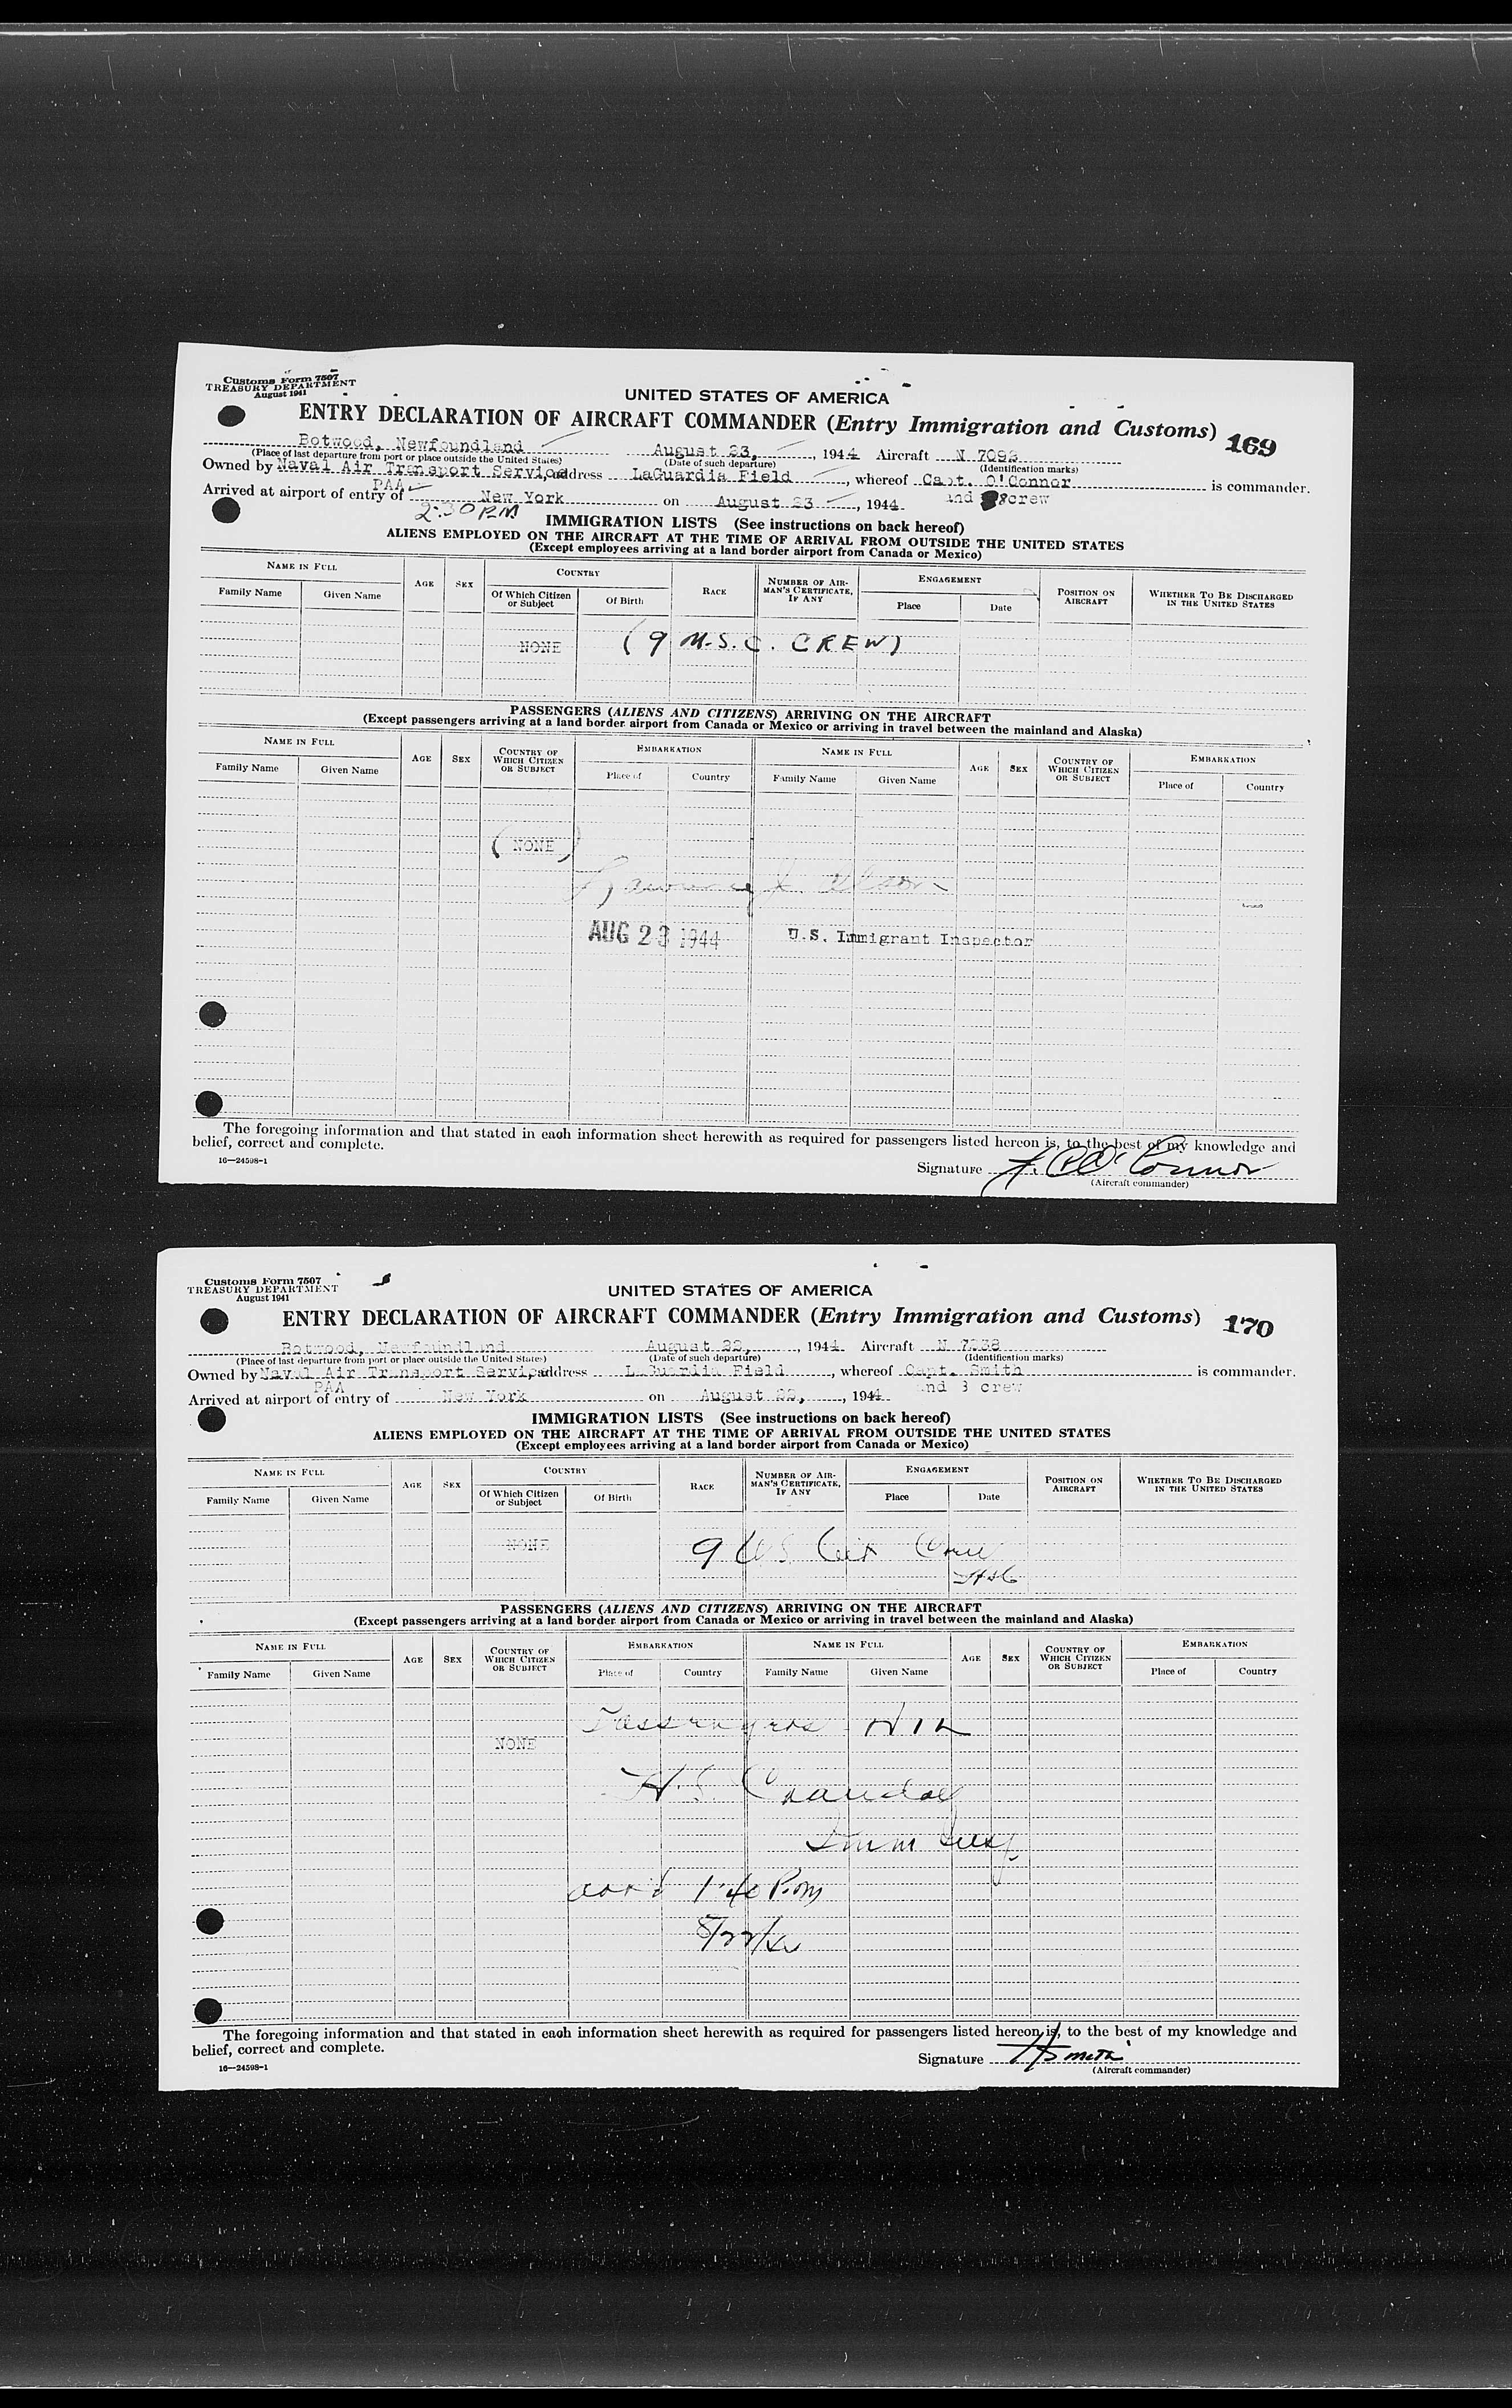 Customs Form 7507
TREASURY DEPARTMENT
August 1941
UNITED STATES OF AMERICA
ENTRY DECLARATION OF AIRCRAFT COMMANDER (Entry Immigration and Customs)
169
Botwood, Newfoundland August 23, , 1944 Aircraft N 7093
(Place of last departure from port or place outside the United States) (Date of such departure) (Identification marks)
Owned by Naval Air Transport Service address LaGuardia Field , whereof Capt. O'Connor is commander.
PAA and 8 crew
Arrived at airport of entry of New York on August 23 , 1944
2:30 PM
IMMIGRATION LISTS (See instructions on back hereof)
ALIENS EMPLOYED ON THE AIRCRAFT AT THE TIME OF ARRIVAL FROM OUTSIDE THE UNITED STATES
(Except employees arriving at a land border airport from Canada or Mexico)
NAME IN FULL AGE SEX COUNTRY RACE NUMBER OF AIRMAN'S CERTIFICATE, IF ANY ENGAGEMENT POSITION ON AIRCRAFT WHETHER TO BE DISCHARGED IN THE UNITED STATES
Family Name Given Name Of Which Citizen or Subject Of Birth Place Date
NONE (9 U.S.C. CREW)
PASSENGERS (ALIENS AND CITIZENS) ARRIVING ON THE AIRCRAFT
(Except passengers arriving at a land border airport from Canada or Mexico or arriving in travel between the mainland and Alaska)
NAME IN FULL AGE SEX COUNTRY OF WHICH CITIZEN OR SUBJECT EMBARKATION NAME IN FULL AGE SEX COUNTRY OF WHICH CITIZEN OR SUBJECT EMBARKATION
Family Name Given Name Place of Country Family Name Given Name Place of Country
(NONE)
AUG 23 1944 U.S. Immigrant Inspector
The foregoing information and that stated in each information sheet herewith as required for passengers listed hereon is, to the best of my knowledge and
belief, correct and complete.
16—24598-1
Signature F. C. O'Connor
(Aircraft commander)
Customs Form 7507
TREASURY DEPARTMENT
August 1941
UNITED STATES OF AMERICA
ENTRY DECLARATION OF AIRCRAFT COMMANDER (Entry Immigration and Customs)
170
Botwood, Newfoundland August 22, , 1944 Aircraft N 7238
(Place of last departure from port or place outside the United States) (Date of such departure) (Identification marks)
Owned by Naval Air Transport Service address LaGuardia Field , whereof Capt. Smith is commander.
PAA and 8 crew
Arrived at airport of entry of New York on August 22, , 1944
IMMIGRATION LISTS (See instructions on back hereof)
ALIENS EMPLOYED ON THE AIRCRAFT AT THE TIME OF ARRIVAL FROM OUTSIDE THE UNITED STATES
(Except employees arriving at a land border airport from Canada or Mexico)
NAME IN FULL AGE SEX COUNTRY RACE NUMBER OF AIRMAN'S CERTIFICATE, IF ANY ENGAGEMENT POSITION ON AIRCRAFT WHETHER TO BE DISCHARGED IN THE UNITED STATES
Family Name Given Name Of Which Citizen or Subject Of Birth Place Date
NONE 9 US Cit Crew
HSC
PASSENGERS (ALIENS AND CITIZENS) ARRIVING ON THE AIRCRAFT
(Except passengers arriving at a land border airport from Canada or Mexico or arriving in travel between the mainland and Alaska)
NAME IN FULL AGE SEX COUNTRY OF WHICH CITIZEN OR SUBJECT EMBARKATION NAME IN FULL AGE SEX COUNTRY OF WHICH CITIZEN OR SUBJECT EMBARKATION
Family Name Given Name Place of Country Family Name Given Name Place of Country
Passengers Nil
NONE
H.S. Crandall
Imm Insp.
arrd 1:40 P.M
8/22/44
The foregoing information and that stated in each information sheet herewith as required for passengers listed hereon is, to the best of my knowledge and
belief, correct and complete.
16—24598-1
Signature Smith
(Aircraft commander)